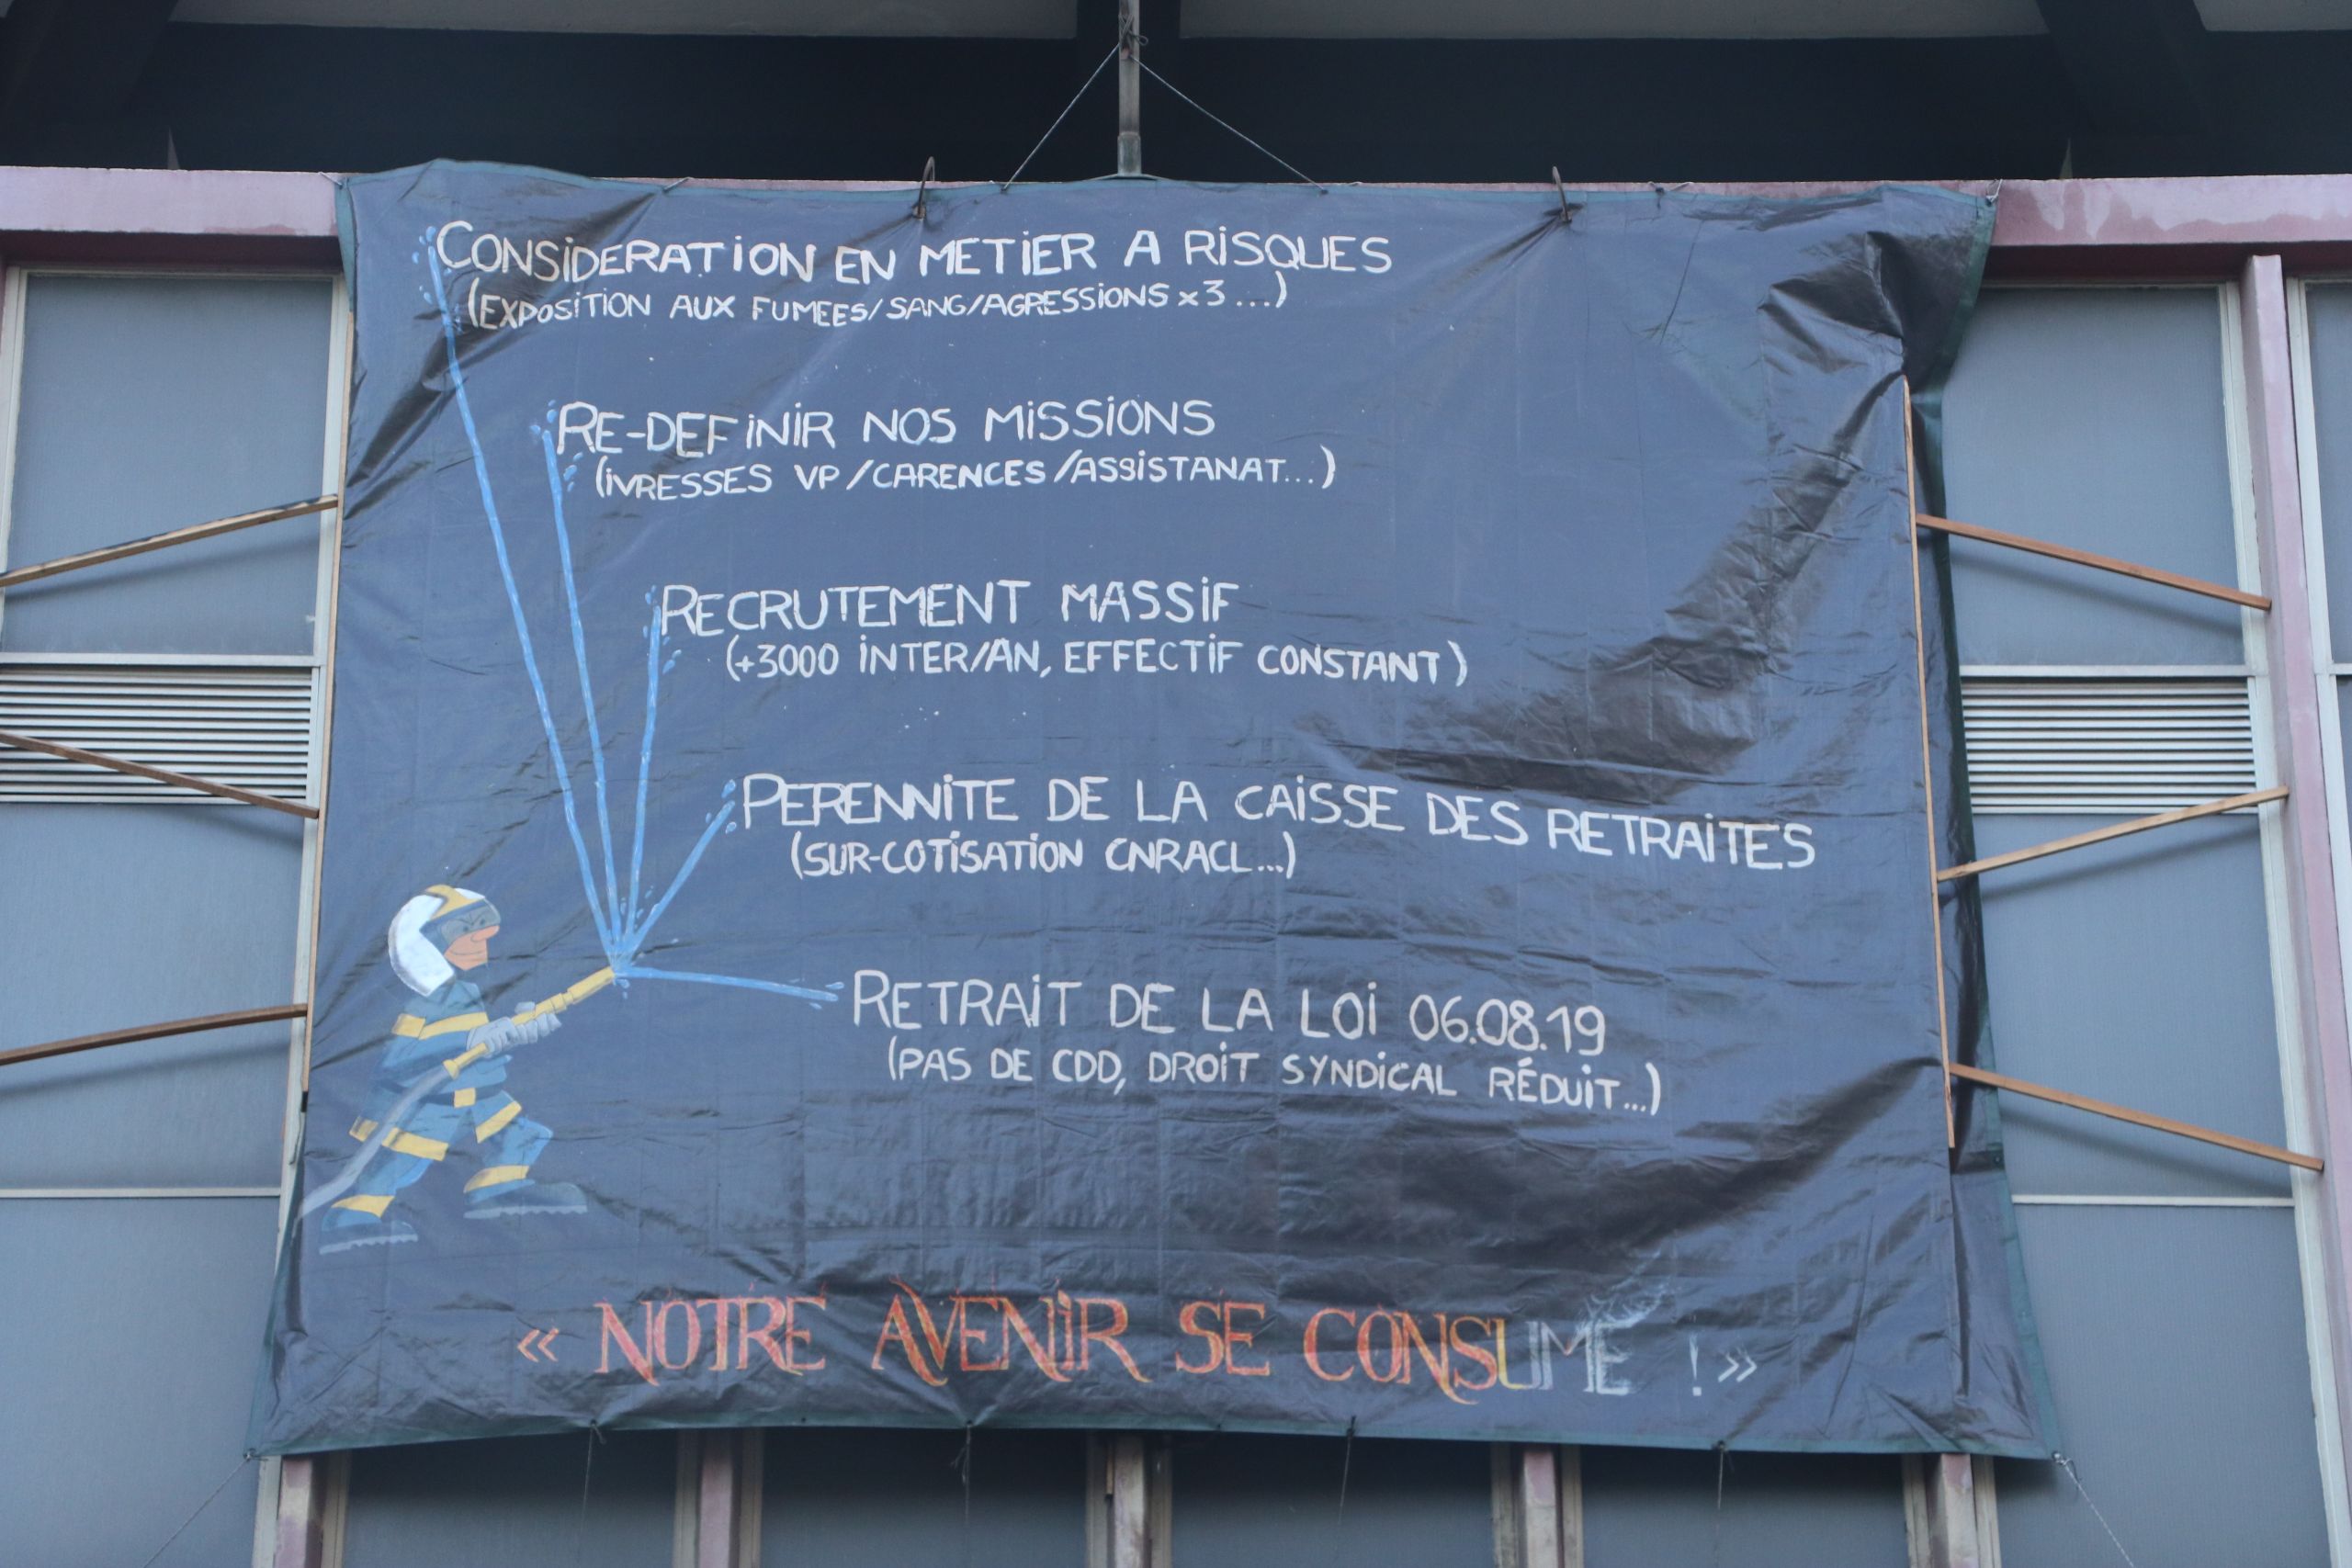 CONSIDERATION EN METIER A RISQUES
(EXPOSITION AUX FUMEES/SANG/AGRESSIONS x3...)
RE-DEFINIR NOS MISSIONS
(IVRESSES VP/CARENCES/ASSISTANAT...)
RECRUTEMENT MASSIF
(+3000 INTER/AN, EFFECTIF CONSTANT)
PERENNITE DE LA CAISSE DES RETRAITES
(SUR-COTISATION CNRACL...)
RETRAIT DE LA LOI 06.08.19
(PAS DE CDD, DROIT SYNDICAL RÉDUIT...)
« NOTRE AVENIR SE CONSUME ! »